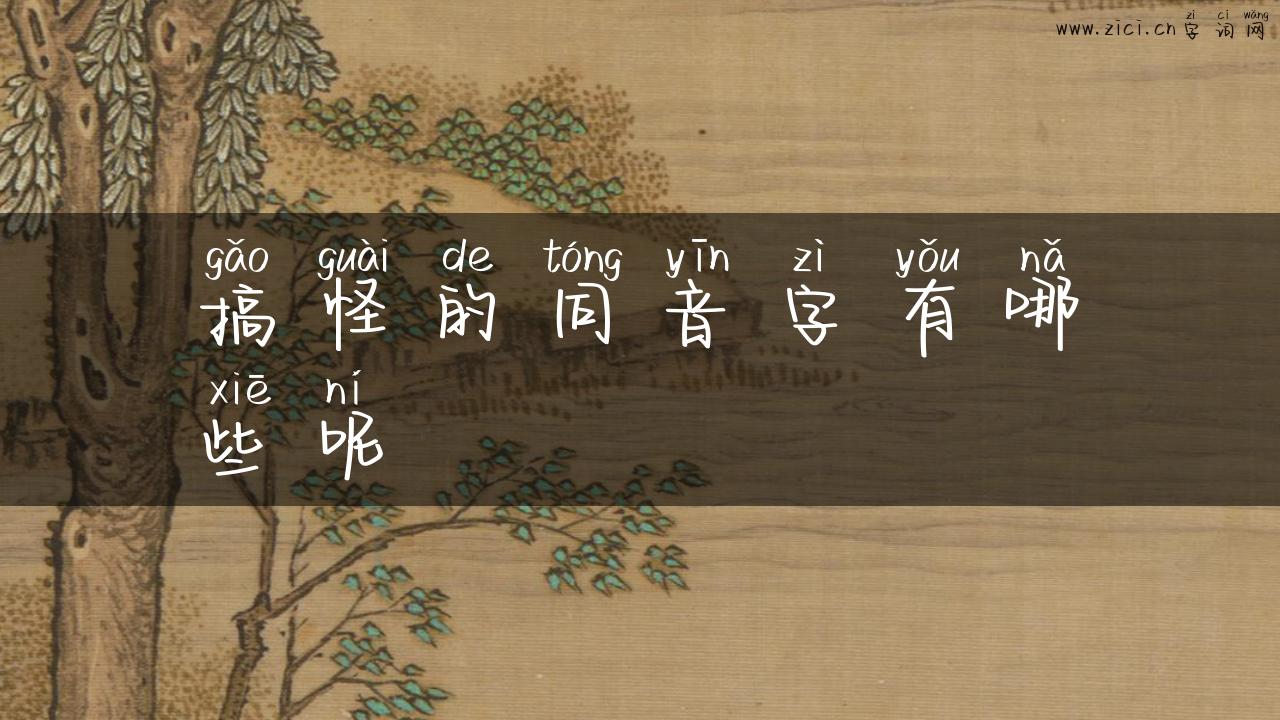 zì cí wǎng
www.zici.cn 字 词 网
gǎo guài de tóng yīn zì yǒu nǎ
搞 怪 的 同 音 字 有 哪
xiē ní
些 呢